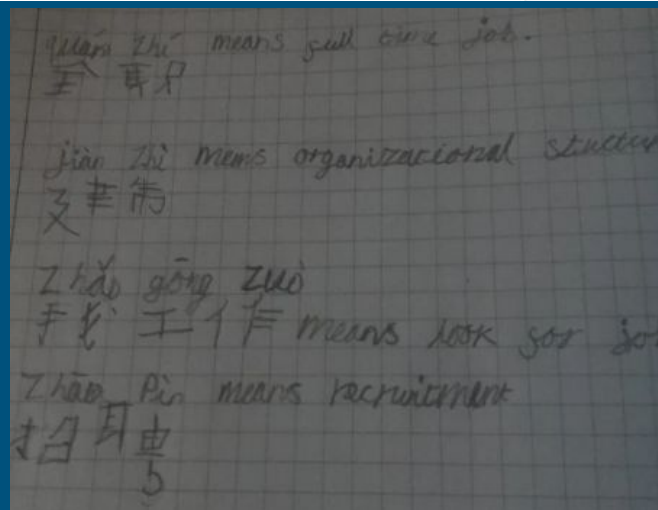 quán zhí means full time job.
全 职
jiàn zhì means organizacional structur
建 制
Zhǎo gōng zuò
找 工 作 means look for jo
Zhāo Pìn means recruitment
招 聘